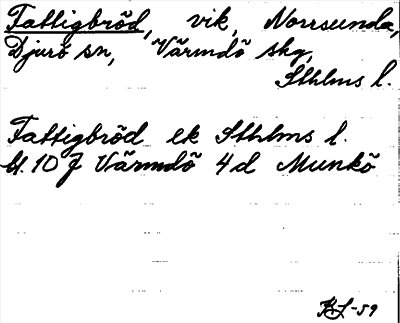 Fattigbröd, vik, Norrsunda,
Djurö sn, Värmdö skg,
Sthlms l.
Fattigbröd ek Sthlms l.
bl. 10 J Värmdö 4 d Munkö
BL-59